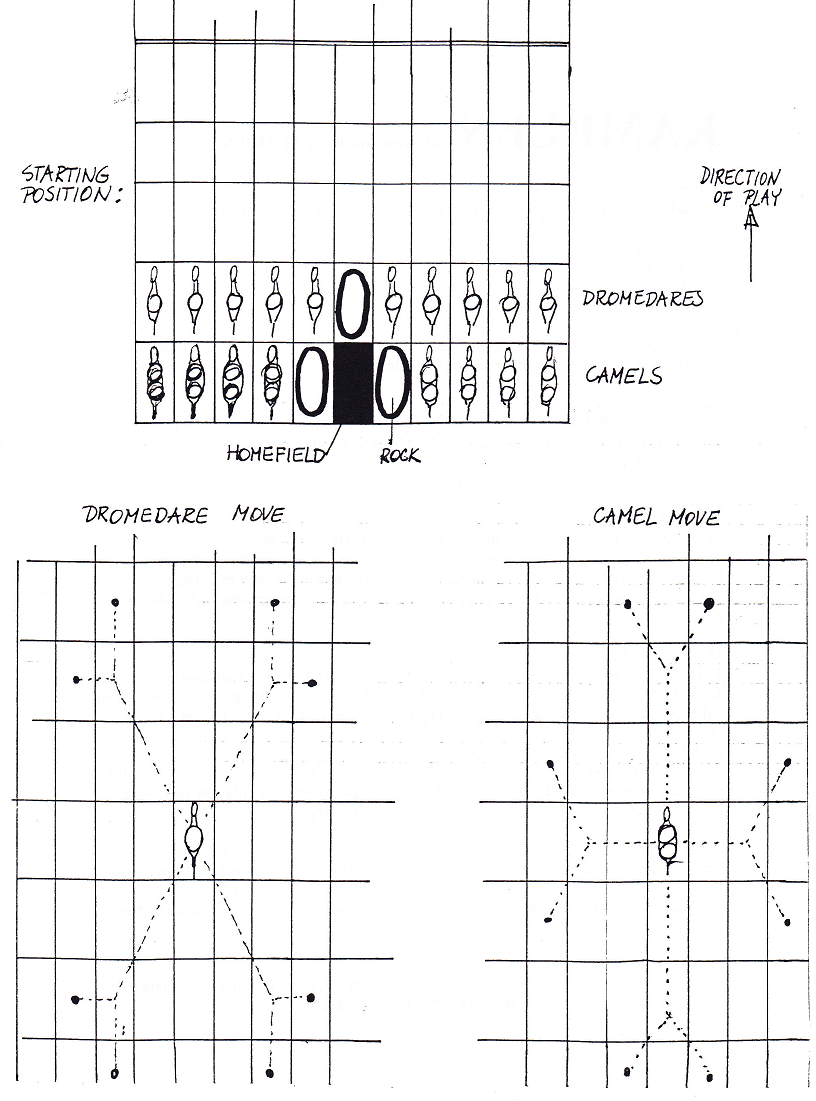 STARTING
POSITION:
DIRECTION
OF PLAY
DROMEDARES
CAMELS
HOMEFIELD
ROCK
DROMEDARE MOVE
CAMEL MOVE